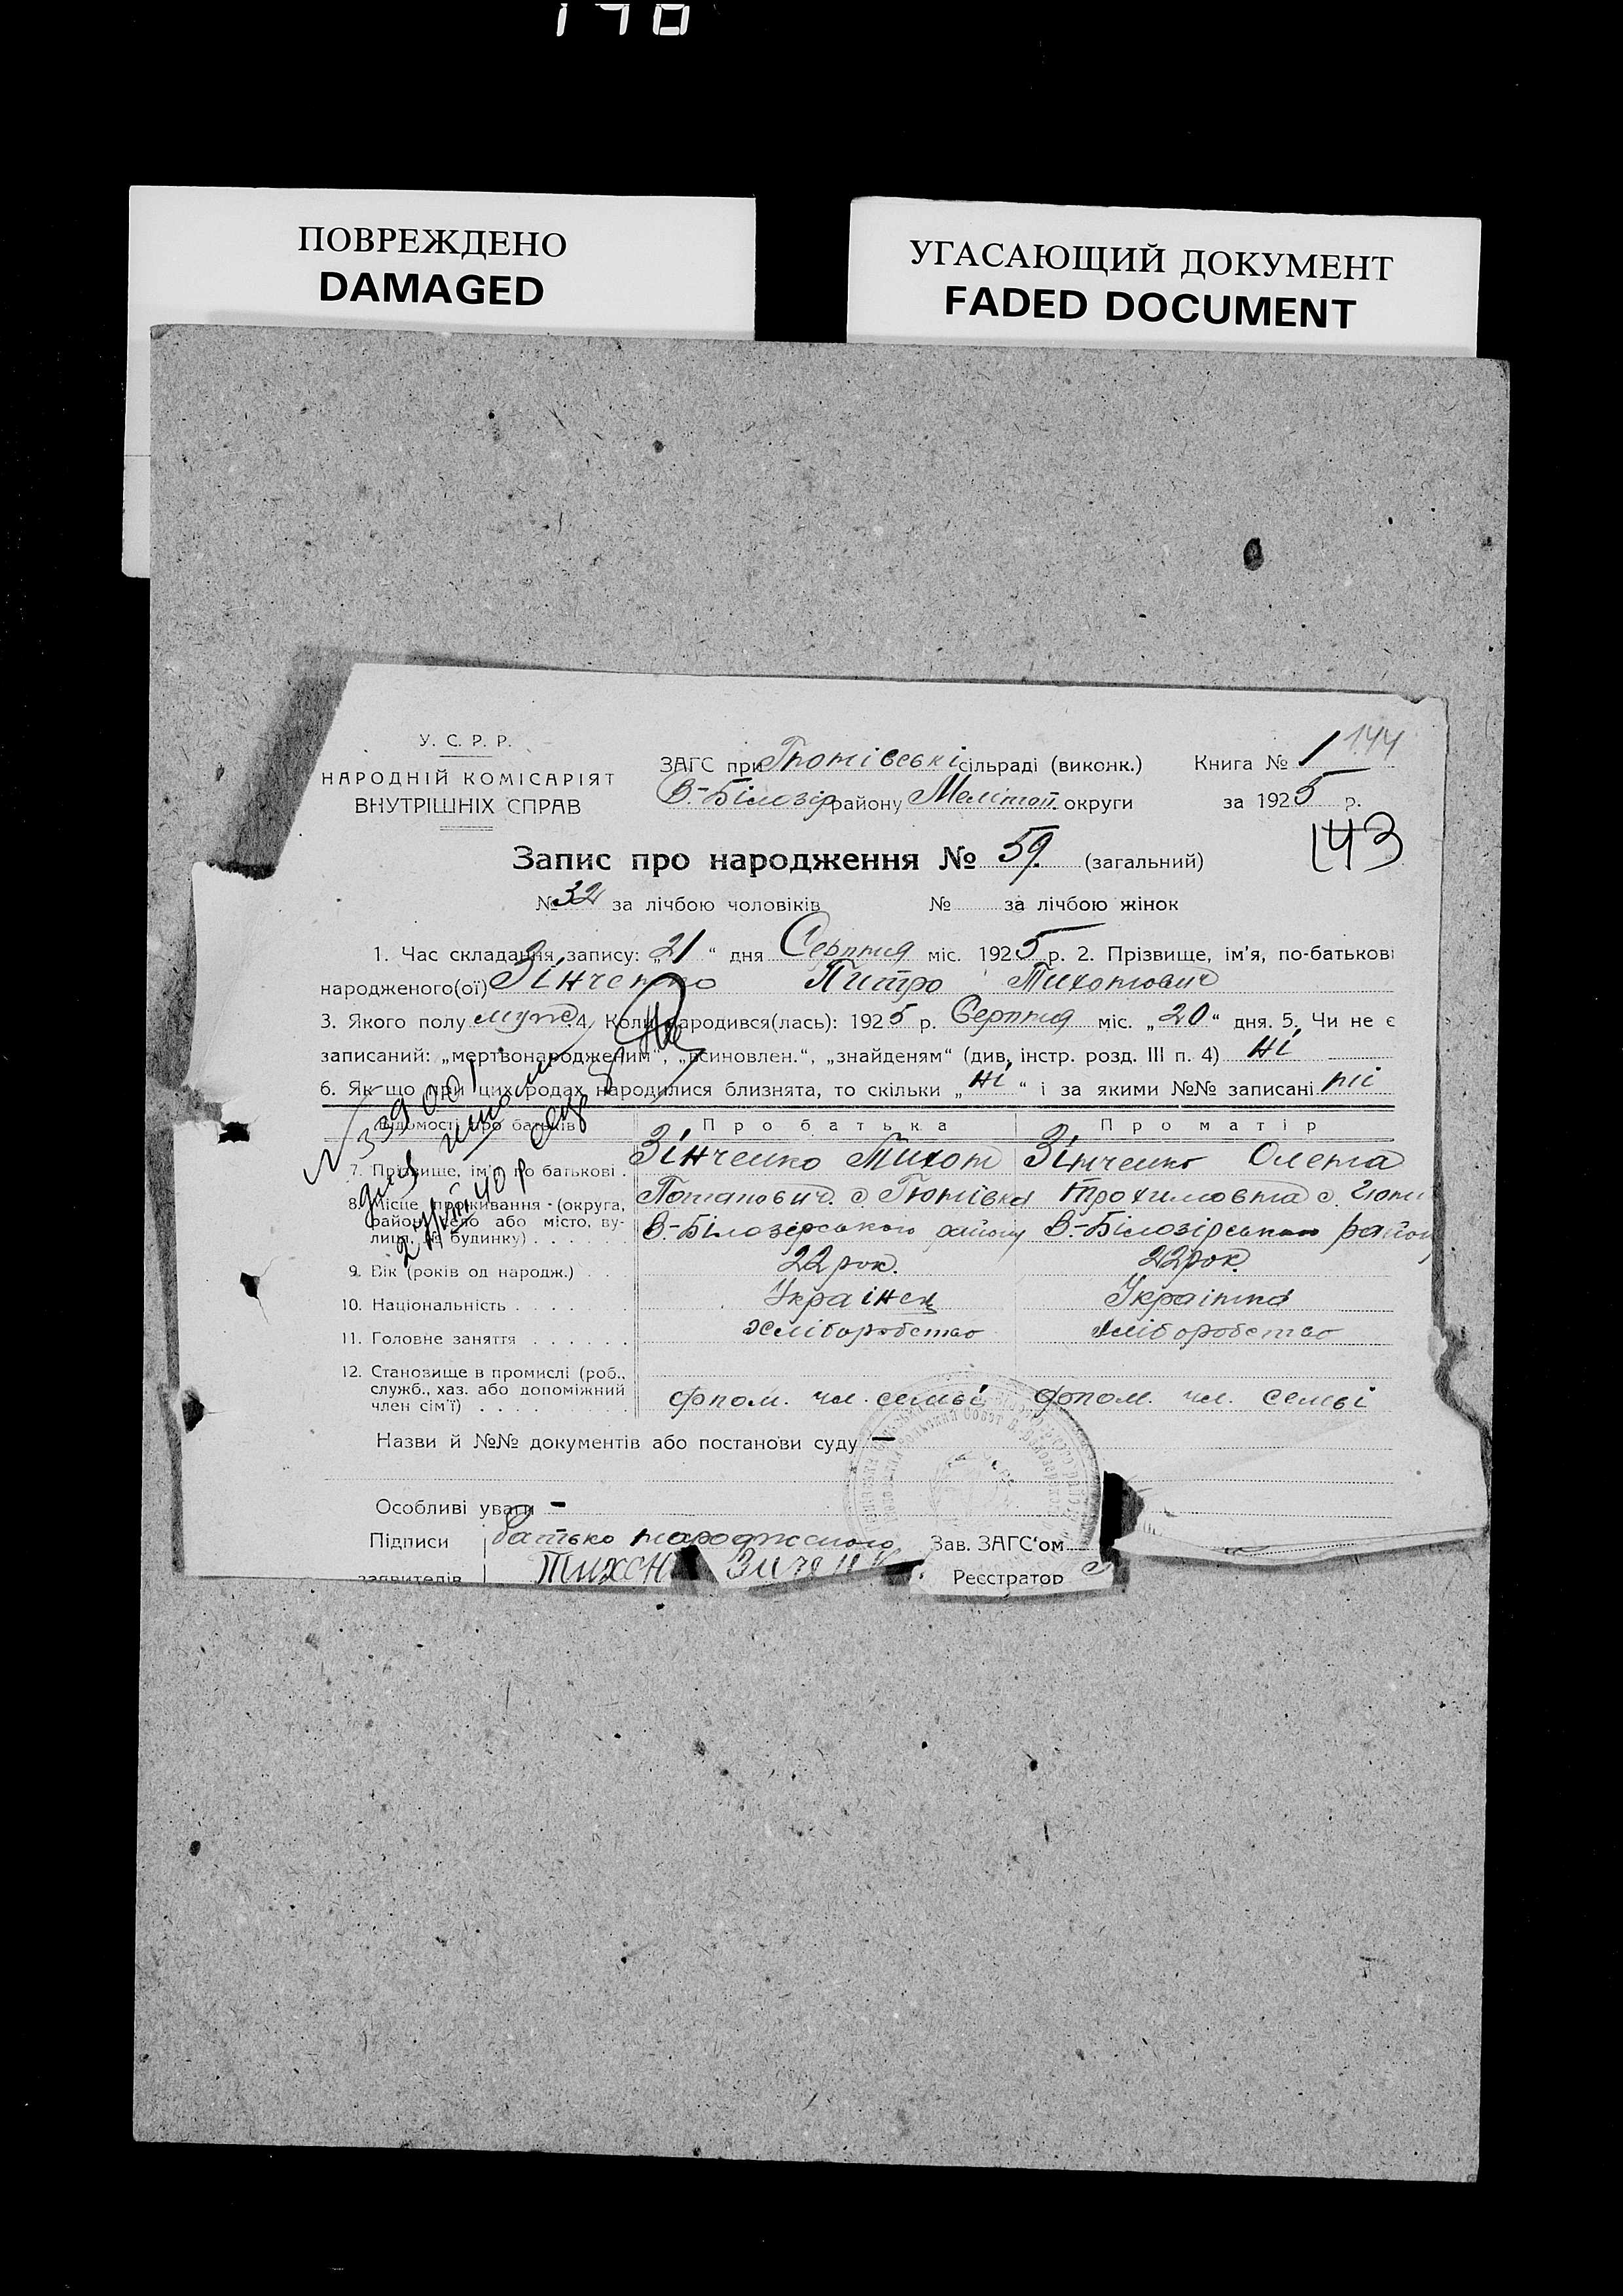 ПОВРЕЖДЕНО
DAMAGED
УГАСАЮЩИЙ ДОКУМЕНТ
FADED DOCUMENT
У. С. Р. Р.
НАРОДНІЙ КОМІСАРІЯТ
ВНУТРІШНІХ СПРАВ
ЗАГС при Гютівські сільраді (виконк.)
В.-Білозір району Меліт округи
Книга № 1 144
за 1925 р.
143
Запис про народження № 59. (загальний)
№ 32 за лічбою чоловіків № за лічбою жінок
1. Час складання запису: „21“ дня Серпня міс. 1925 р. 2. Прізвище, ім'я, по-батькові
народженого(ої) Зінченко Питро Тихонович
3. Якого полу муж. 4. Коли народився(лась): 1925 р. Серпня міс. „20“ дня. 5. Чи не є
записаний: „мертвонародженим“, „всиновлен.“, „знайденям“ (див. інстр. розд. III п. 4) ні
6. Як що при цих родах народилися близнята, то скільки „ні“ і за якими №№ записані ні
Відомості про батьків Про батька Про матір
7. Прізвище, ім'я, по батькові . Зінченко Тихон Зінченко Олена
8. Місце проживання - (округа, Потапович. с Гютівка Трохимовна с. Гюти
район, село або місто, ву- В.-Білозерського району В.-Білозірського району
лиця, № будинку) . . . . .
9. Вік (років од народж.) . . 22 рок. 22 рок.
10. Національність . . . . . Українец Українка
11. Головне заняття . . . . . . хліборобство хліборобство
12. Становище в промислі (роб.,
служб., хаз. або допоміжний
член сім'ї) . . . . допом. чл. семьі допом. чл. семьі
Назви й №№ документів або постанови суду —
Особливі уваги —
Підписи батько народженого Зав. ЗАГС'ом
заявителів Тихон Зиченк Реєстратор